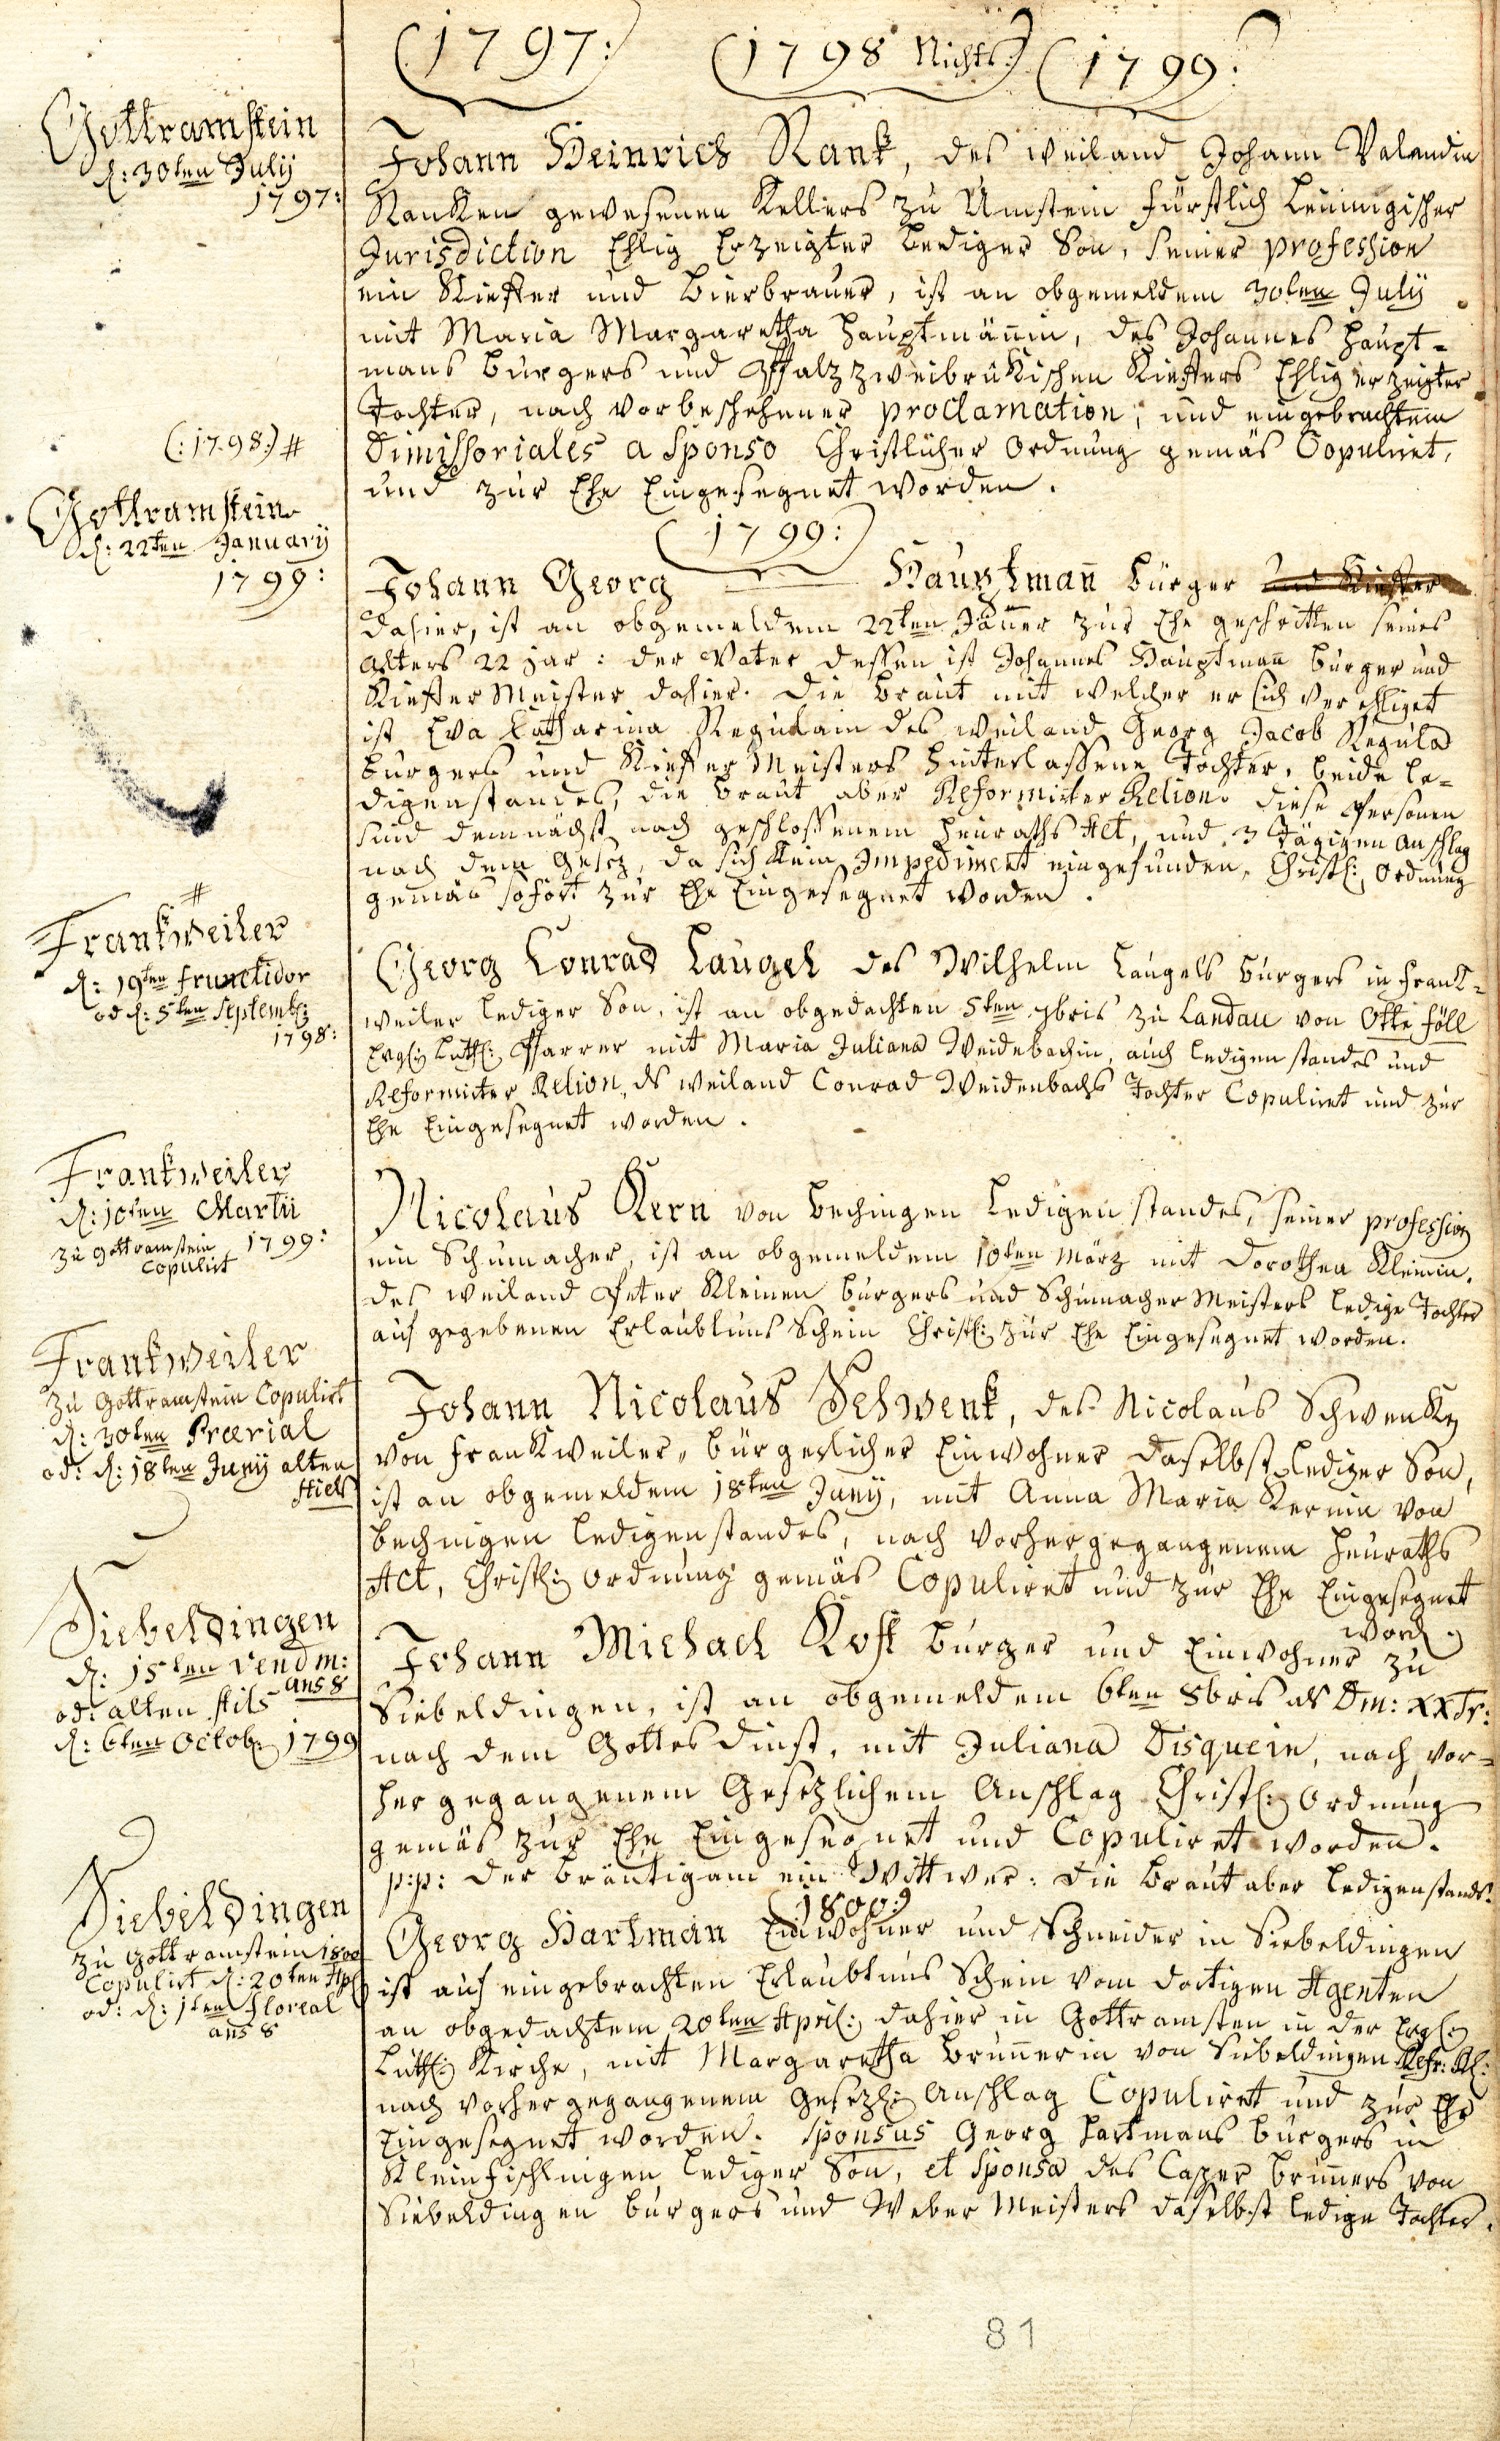 (1797:) (1798 Nichts:) (1799:)
Gottramstein
d: 30ten Julij
1797:
Johann Heinrich Rank, des weiland Johann Valendin
Ranken gewesenen Kellers zu Umstein Fürstlich Leiningischer
Jurisdiction Ehlig Erzeigter Lediger Son, seiner profession
ein Kieffer und Bierbrauer, ist an obgemeldem 30ten Julij
mit Maria Margaretha Hauptmännin, des Johannes Haupt-
mans Burgers und Pfalz zweibrükischen Kieffers Ehlig erzeigter
Tochter, nach vorbeschehener proclamation, und eingebrachtem
Dimissoriales a Sponso Christlicher Ordnung gemäs Copuliret,
und zur Ehe Eingesegnet worden.
(:1798:) #
(1799:)
Gottramstein
d: 22ten January
1799:
Johann Georg Hauptman̄ Bürger und Kieffer
dahier, ist an obgemeldem 22ten Jäner zur Ehe geschritten seines
Alters 22 jar: der Vater dessen ist Johannes Hauptman̄ Burger und
Kieffer Meister dahier. Die Braut mit welcher er sich verehliget
ist Eva Catharina Regulain des weiland Georg Jacob Regula
Burgers und Kieffer Meisters hinterlassene Tochter, beide le-
digenstandes, die Braut aber Reformirter Relion. diese Personen
sind demnächst nach geschlossenem Heuraths Act, und 3 Tägigen Anschlag
nach dem Gesez, da sich kein Impediment eingefunden, Christl: Ordnung
gemäs sofort zur Ehe Eingesegnet worden.
#
Frankweiler
d: 19ten fructidor
od d: 5ten Septembr:
1798:
Georg Conrad Laugel des Wilhelm Laugels Burgers in Frank-
weiler lediger Son, ist an obgedachten 5ten 7bris zu Landau von Otte föll
Evgl: Luth: Pfarrer mit Maria Juliana Weidebachin, auch ledigen standes und
Reformirter Relion, ds weiland Conrad Weidenbachs Tochter Copuliret und zur
Ehe Eingesegnet worden.
Frankweiler
d: 10ten Martii
zu Gottramstein 1799:
Copulirt
Nicolaus Kern von Bechingen Ledigen standes, seiner profession
ein Schumacher, ist an obgemeldem 10ten März mit Dorothea Kleinin,
des weiland Peter Kleinen Burgers und Schumacher Meisters ledige Tochter
auf gegebenen Erlaubtnus Schein Christl: zur Ehe Eingesegnet worden.
Frankweiler
zu Gottramstein Copulirt
d: 30ten Prærial
od: d: 18ten Junij alten
stiels
Johann Nicolaus Schwenk, des Nicolaus Schwenken
von Frankweiler, bürgerlicher Einwohner daselbst lediger Son,
ist an obgemeldem 18ten Junij, mit Anna Maria Kernin von
Bechingen ledigenstandes, nach vorhergegangenem Heuraths
Act, Christl: Ordnung gemäs Copuliret und zur Ehe Eingesegnet
word.
Siebeldingen
d: 15ten Vendm:
ans 8
od: alten stils
d: 6ten Octob: 1799
Johann Michael Kost Burger und Einwohner zu
Siebeldingen, ist an obgemeldem 6ten 8bris als Dm: XX Tr:
nach dem Gottesdinst, mit Juliana Disquein, nach vor-
hergegangenem Gesezlichem Anschlag Christl: Ordnung
gemäs zur Ehe Eingesegnet und Copuliret worden.
p:p: der Bräutigam ein Wittwer. Die Braut aber ledigenstands.
(1800:)
Siebeldingen
zu Gottramstein 1800
Copulirt d: 20ten Apl
od: d: 1ten Floreal
ans 8
Georg Hartman Einwohner und Schneider in Siebeldingen
ist auf eingebrachten Erlaubtnus Schein vom dortigen Agenten
an obgedachtem 20ten April: dahier in Gottramsten in der Evgl:
Luth: Kirche, mit Margaretha Brunnerin von Siebeldingen Refr: Rl:
nach vorhergegangenem Gesezl: Anschlag Copuliret und zur Ehe
Eingesegnet worden. Sponsus Georg Hartmans Burgers in
Kleinfischlingen lediger Son, et Sponsa des Casper Brunners von
Siebeldingen Burgers und Weber Meisters daselbst ledige Tochter.
81